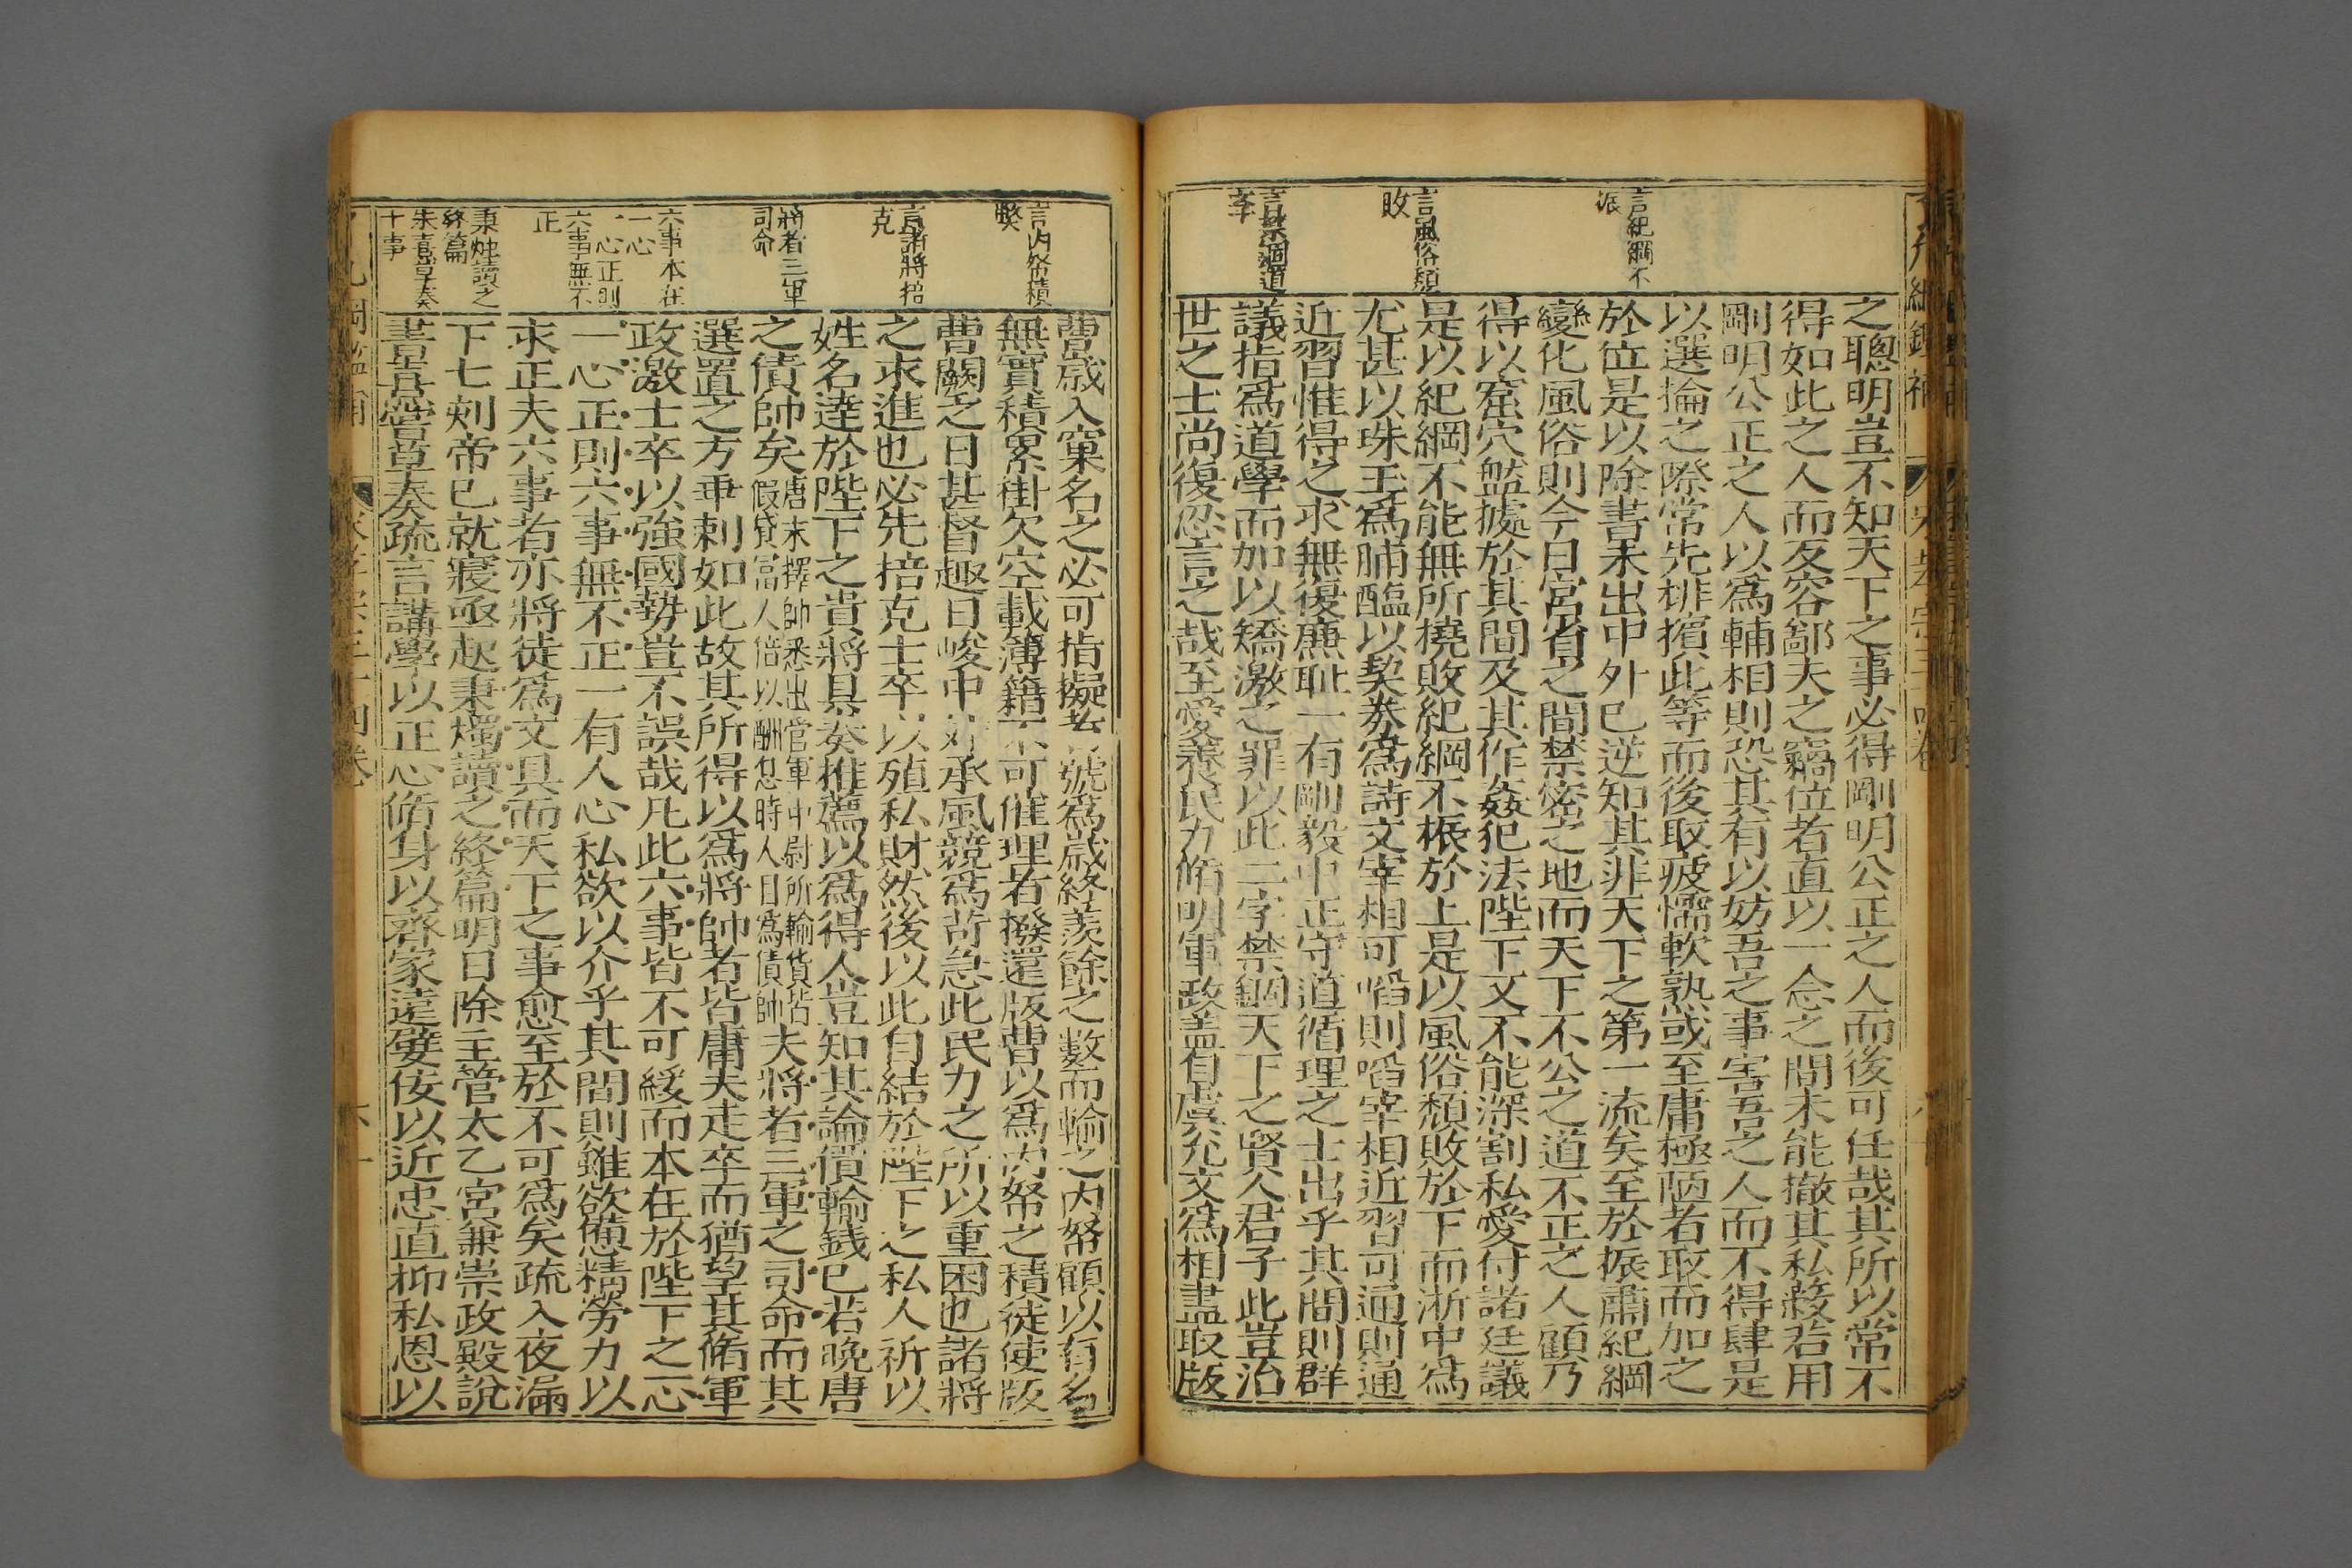 言紀綱不
振
言風俗頹
敗
言禁錮道
學
之聰明豈不知天下之事必得剛明公正之人而後可任哉其所以常不
得如此之人而反容鄙夫之竊位者直以一念之間未能撤其私蔽若用
剛明公正之人以爲輔相則恐其有以妨吾之事害吾之人而不得肆是
以選掄之際常先排擯此等而後取疲懦軟熟或至庸極陋者取而加之
於位是以除書未出中外已逆知其非天下之第一流矣至於振肅紀綱
變化風俗則今日宮省之間禁密之地而天下不公之道不正之人顧乃
得以窟穴盤據於其間及其作姦犯法陛下又不能深割私愛付諸廷議
是以紀綱不能無所撓敗紀綱不振於上是以風俗頹敗於下而浙中爲
尤甚以珠玉爲脯醢以契券爲詩文宰相可啗則啗宰相近習可通則通
近習惟得之求無復廉恥一有剛毅中正守道循理之士出乎其間則群
議指爲道學而加以矯激之罪以此二字禁錮天下之賢人君子此豈治
世之士尚復忍言之哉至愛養民力脩明軍政盖自虞允文爲相盡取版
言內帑積
弊
言諸將掊
克
將者三軍
司命
六事本在
一心
一心正則
六事無不
正
秉燭讀之
終篇
朱熹草奏
十事
曹歲入窠名之必可指擬者號爲歲終羨餘之數而輸之內帑顧以有名
無實積累掛欠空載簿籍不可催理者撥還版曹以爲內帑之積徒使版
曹闕之日甚督趣日峻中外承風競爲苛急此民力之所以重困也諸將
之求進也必先掊克士卒以殖私財然後以此自結於陛下之私人祈以
姓名達於陛下之貴將具奏推薦以爲得人豈知其論價輸錢已若晚唐
之債帥矣唐末擇帥悉出宦官軍中尉所輸貨皆假貸富人倍以酬息時人目爲債帥夫將者三軍之司命而其
選置之方乖剌如此故其所得以爲將帥者皆庸夫走卒而猶望其脩軍
政激士卒以強國勢豈不誤哉凡此六事皆不可緩而本在於陛下之心
一心正則六事無不正一有人心私欲以介乎其間則雖欲憊精勞力以
求正夫六事者亦將徒爲文具而天下之事愈至於不可爲矣疏入夜漏
下七刻帝已就寢亟起秉燭讀之終篇明日除主管太乙宮兼崇政殿說
書熹嘗草奏疏言講學以正心脩身以齊家遠嬖佞以近忠直抑私恩以